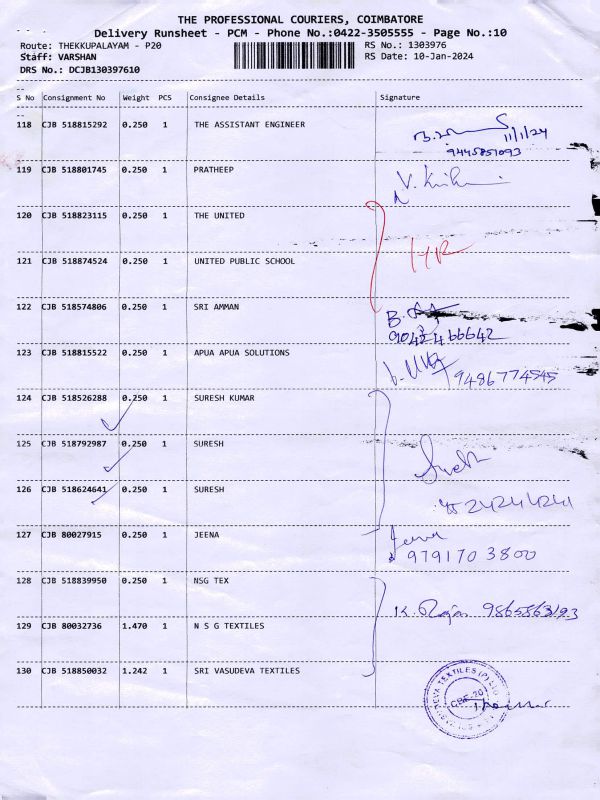 THE PROFESSIONAL COURIERS, COIMBATORE
Delivery Runsheet - PCM - Phone No.:0422-3505555 - Page No.:10
Route: THEKKUPALAYAM - P20 RS No.: 1303976
Staff: VARSHAN RS Date: 10-Jan-2024
DRS No.: DCJB130397610
S No Consignment No Weight PCS Consignee Details Signature
118 CJB 518815292 0.250 1 THE ASSISTANT ENGINEER
11/1/24
9445851093
119 CJB 518801745 0.250 1 PRATHEEP
V.
120 CJB 518823115 0.250 1 THE UNITED
121 CJB 518874524 0.250 1 UNITED PUBLIC SCHOOL
HR
122 CJB 518574806 0.250 1 SRI AMMAN
B.
466642
123 CJB 518815522 0.250 1 APUA APUA SOLUTIONS
9486774545
124 CJB 518526288 0.250 1 SURESH KUMAR
125 CJB 518792987 0.250 1 SURESH
126 CJB 518624641 0.250 1 SURESH
127 CJB 80027915 0.250 1 JEENA
9791703800
128 CJB 518839950 0.250 1 NSG TEX
K. Raja 9865863193
129 CJB 80032736 1.470 1 N S G TEXTILES
130 CJB 518850032 1.242 1 SRI VASUDEVA TEXTILES
CBE-20